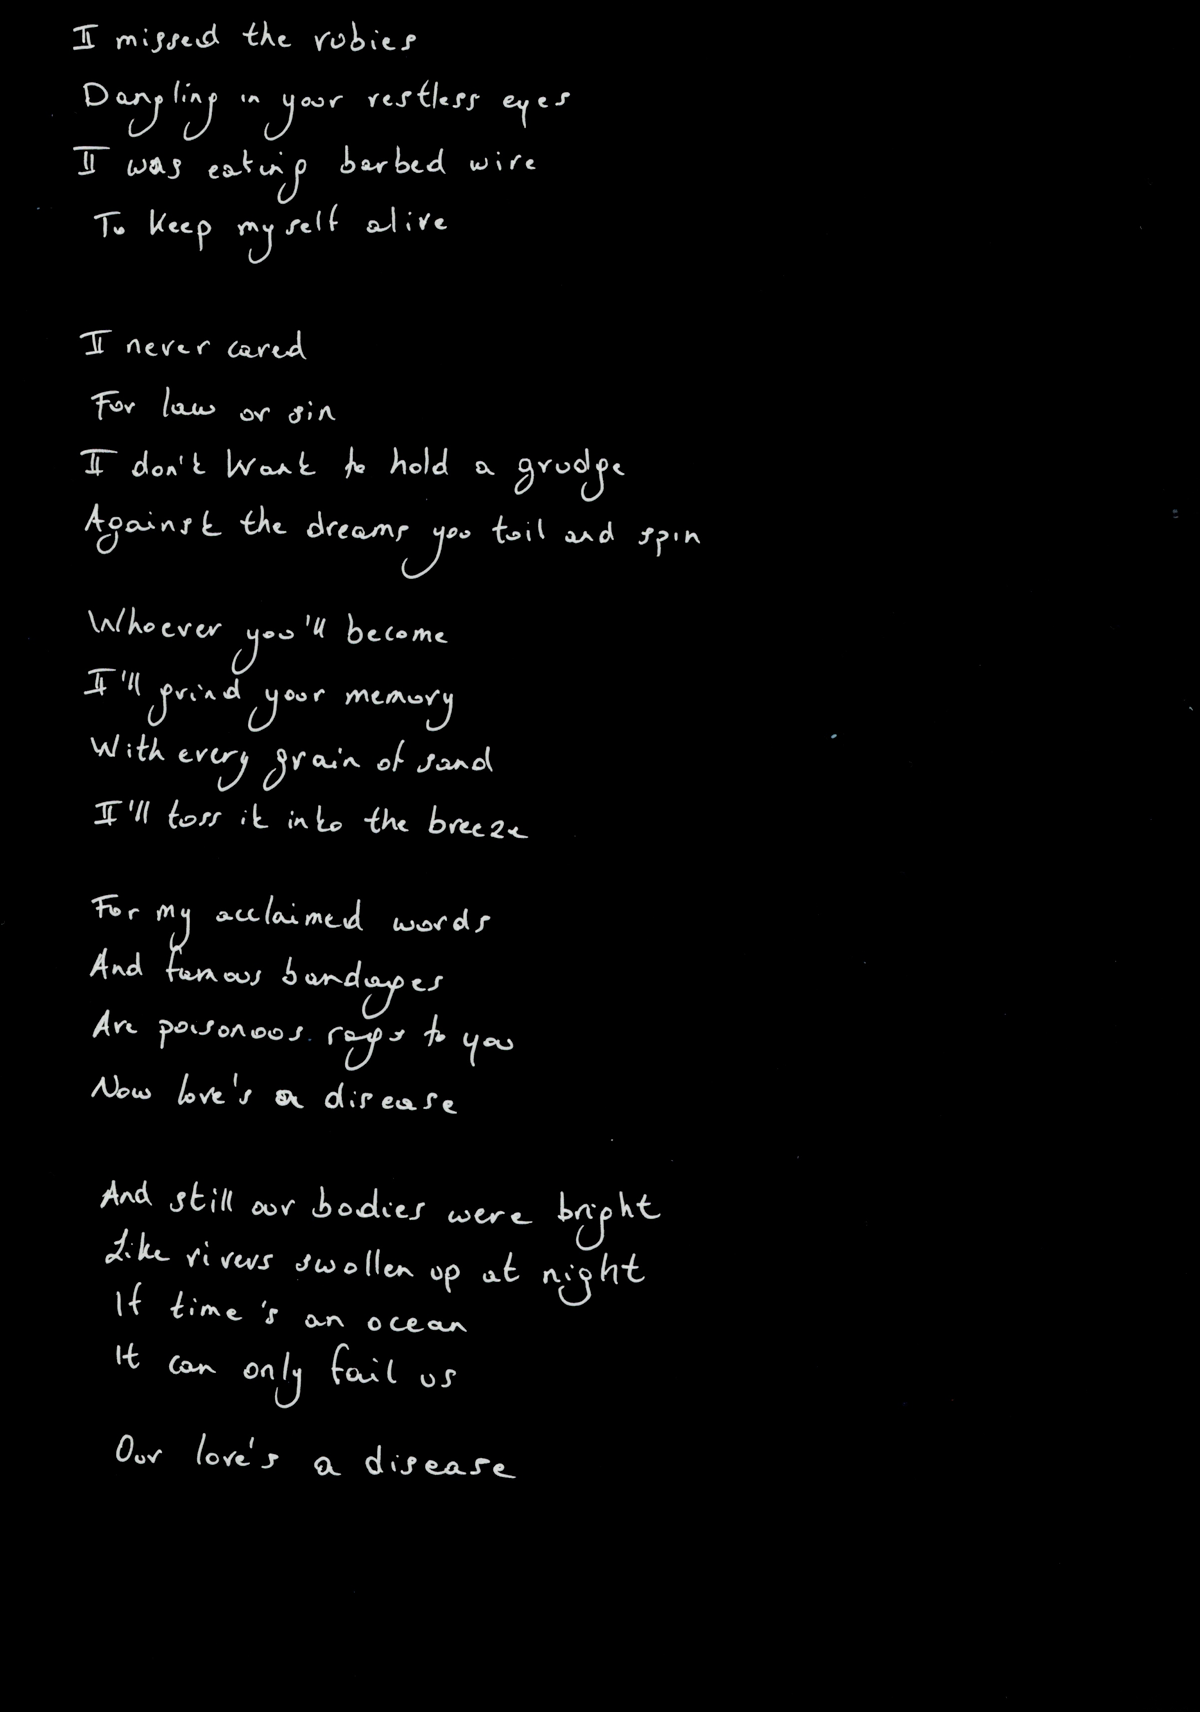 I missed the rubies
Dangling in your restless eyes
I was eating barbed wire
To keep myself alive
I never cared
For law or sin
I don't want to hold a grudge
Against the dreams you toil and spin
Whoever you'll become
I'll grind your memory
With every grain of sand
I'll toss it into the breeze
For my acclaimed words
And famous bandages
Are poisonous rags to you
Now love's a disease
And still our bodies were bright
Like rivers swollen up at night
If time's an ocean
It can only fail us
Our love's a disease